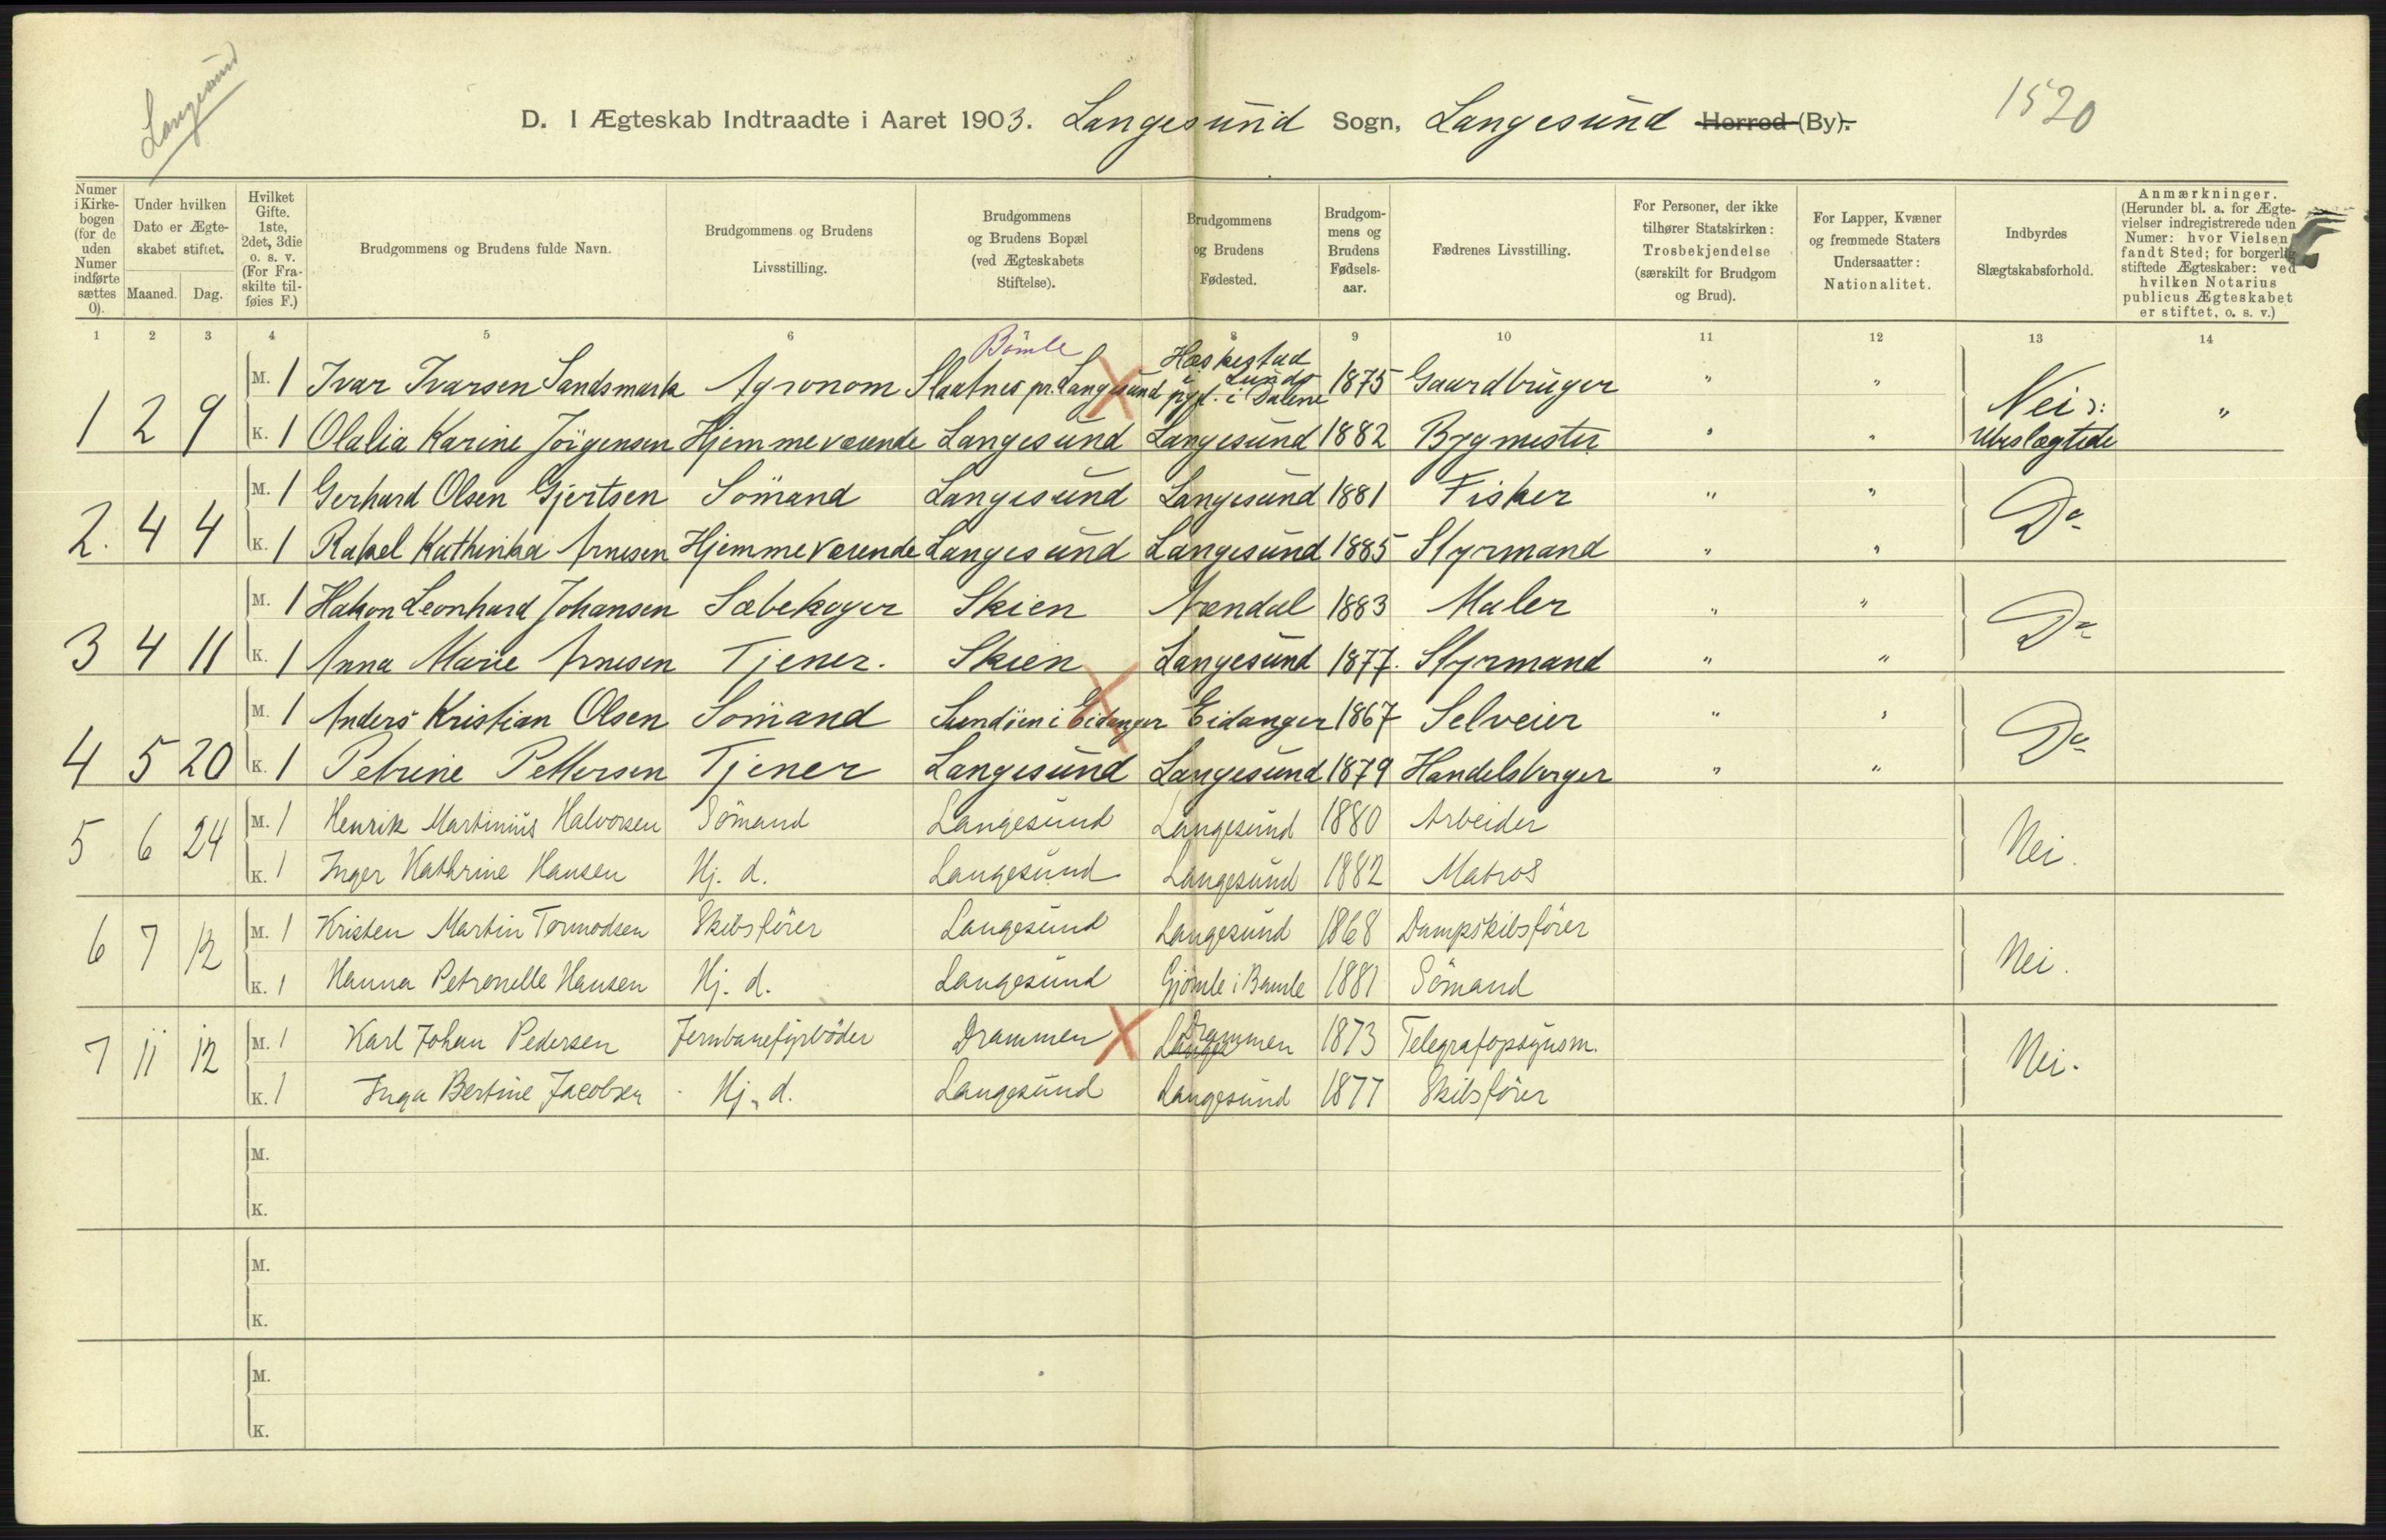 Langesund
D. I Ægteskab Indtraadte i Aaret 1903. Langesund Sogn, Langesund Herred (By).
1520
Numer i Kirkebogen (for de uden Numer indførte sættes 0).
Under hvilken Dato er Ægteskabet stiftet.
Maaned. Dag.
Hvilket Gifte. 1ste, 2det, 3die o. s. v. (For Fraskilte tilføies F.)
Brudgommens og Brudens fulde Navn.
Brudgommens og Brudens Livsstilling.
Brudgommens og Brudens Bopæl (ved Ægteskabets Stiftelse).
Brudgommens og Brudens Fødested.
Brudgommens og Brudens Fødselsaar.
Fædrenes Livsstilling.
For Personer, der ikke tilhører Statskirken: Trosbekjendelse (særskilt for Brudgom og Brud).
For Lapper, Kvæner og fremmede Staters Undersaatter: Nationalitet.
Indbyrdes Slægtskabsforhold.
Anmærkninger. (Herunder bl. a. for Ægtevielser indregistrerede uden Numer: hvor Vielsen fandt Sted; for borgerlig stiftede Ægteskaber: ved hvilken Notarius publicus Ægteskabet er stiftet, o. s. v.)
1 2 3 4 5 6 7 8 9 10 11 12 13 14
Heskestad
M. 1 Ivar Ivarsen Sandsmark Agronom Slaatnes pr. Langesund i Lunds pgd. i Dalene 1875 Gaardbruger " "
1 2 9 K. 1 Olalia Karine Jörgensen Hjemmeværende Langesund Langesund 1882 Bygmester " " Nei ɔ: Ubeslægtede "
M. 1 Gerhard Olsen Gjertsen Sömand Langesund Langesund 1881 Fisker " "
2. 4 4 K. 1 Rakel Kathinka Arnesen Hjemmeværende Langesund Langesund 1885 Styrmand " " Do
M. 1 Hakon Leonhard Johansen Sæbekoger Skien Arendal 1883 Maler " "
3 4 11 K. 1 Anna Marie Arnesen Tjener. Skien Langesund 1877. Styrmand " " Do
M. 1 Anders Kristian Olsen Sömand i Eidanger Eidanger 1867 Selveier " "
4 5 20 K. 1 Petrine Pettersen Tjener Langesund Langesund 1879 Handelsborger " " Do
5 6 24 M. 1 Henrik Martinius Halvorsen Sömand Langesund Langesund 1880 Arbeider
K. 1 Inger Kathrine Hansen Hj. d. Langesund Langesund 1882 Matros Nei.
6 7 12 M. 1 Kristen Martin Tormodsen Skibsförer Langesund Langesund 1868 Dampskibsförer
K. 1 Hanna Petronelle Hansen Hj. d. Langesund Gjömle i Bamle 1881 Sömand Nei.
7 11 12 M. 1 Karl Johan Pedersen Jernbanefyrböder Drammen Lange Drammen 1873 Telegrafopsynsm.
K. 1 Inga Bertine Jacobsen Hj. d. Langesund Langesund 1877 Skibsförer Nei.
M.
K.
M.
K.
M.
K.